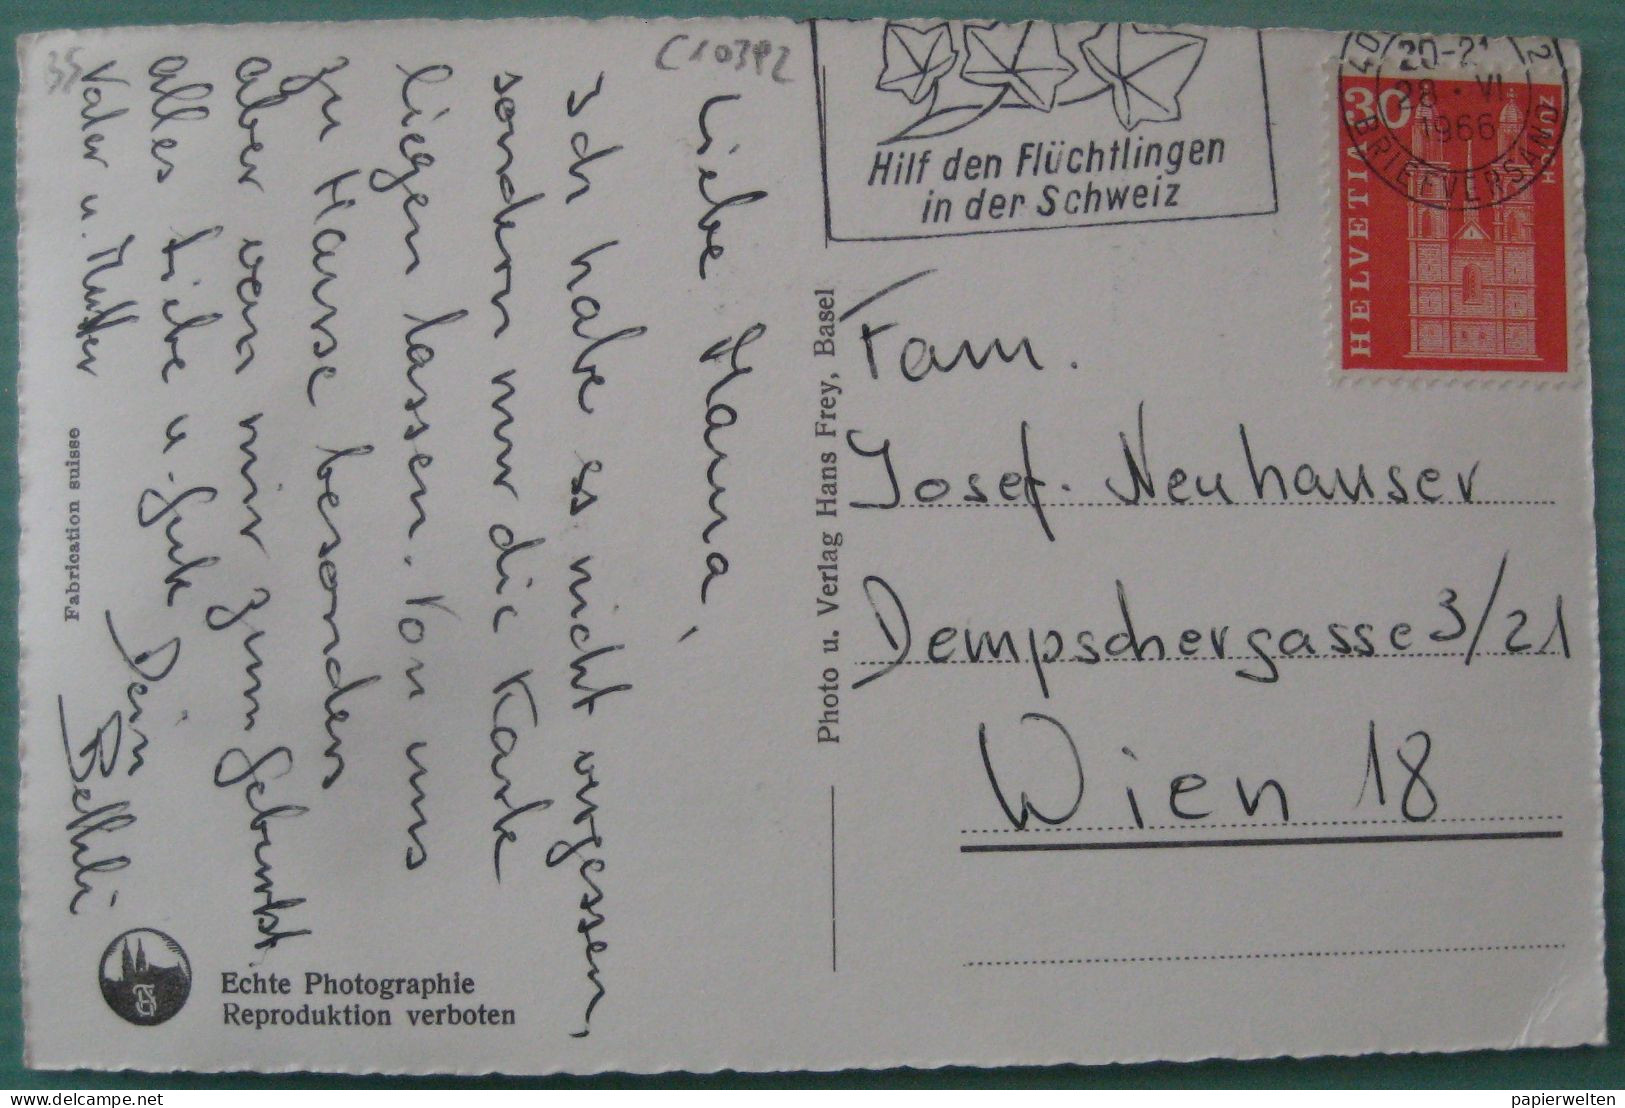 35
C10392
Liebe Mama,
Ich habe es nicht vergessen,
sondern nur die Karte
liegen lassen. Von uns
zu Hause besonders
aber von mir zum Geburtst.
alles Liebe u. Gute Dein
Vater u. Mutter Bethli
Fabrication suisse
Echte Photographie
Reproduktion verboten
Photo u. Verlag Hans Frey, Basel
Hilf den Flüchtlingen
in der Schweiz
20-21
28·VI
1966
BRIEFVERSAND
30
HELVETIA
ZÜRICH
Fam.
Josef. Neuhauser
Dempschergasse 3/21
Wien 18
papierwelten